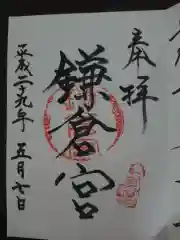 奉拝
鎌倉宮
平成二十九年 五月七日